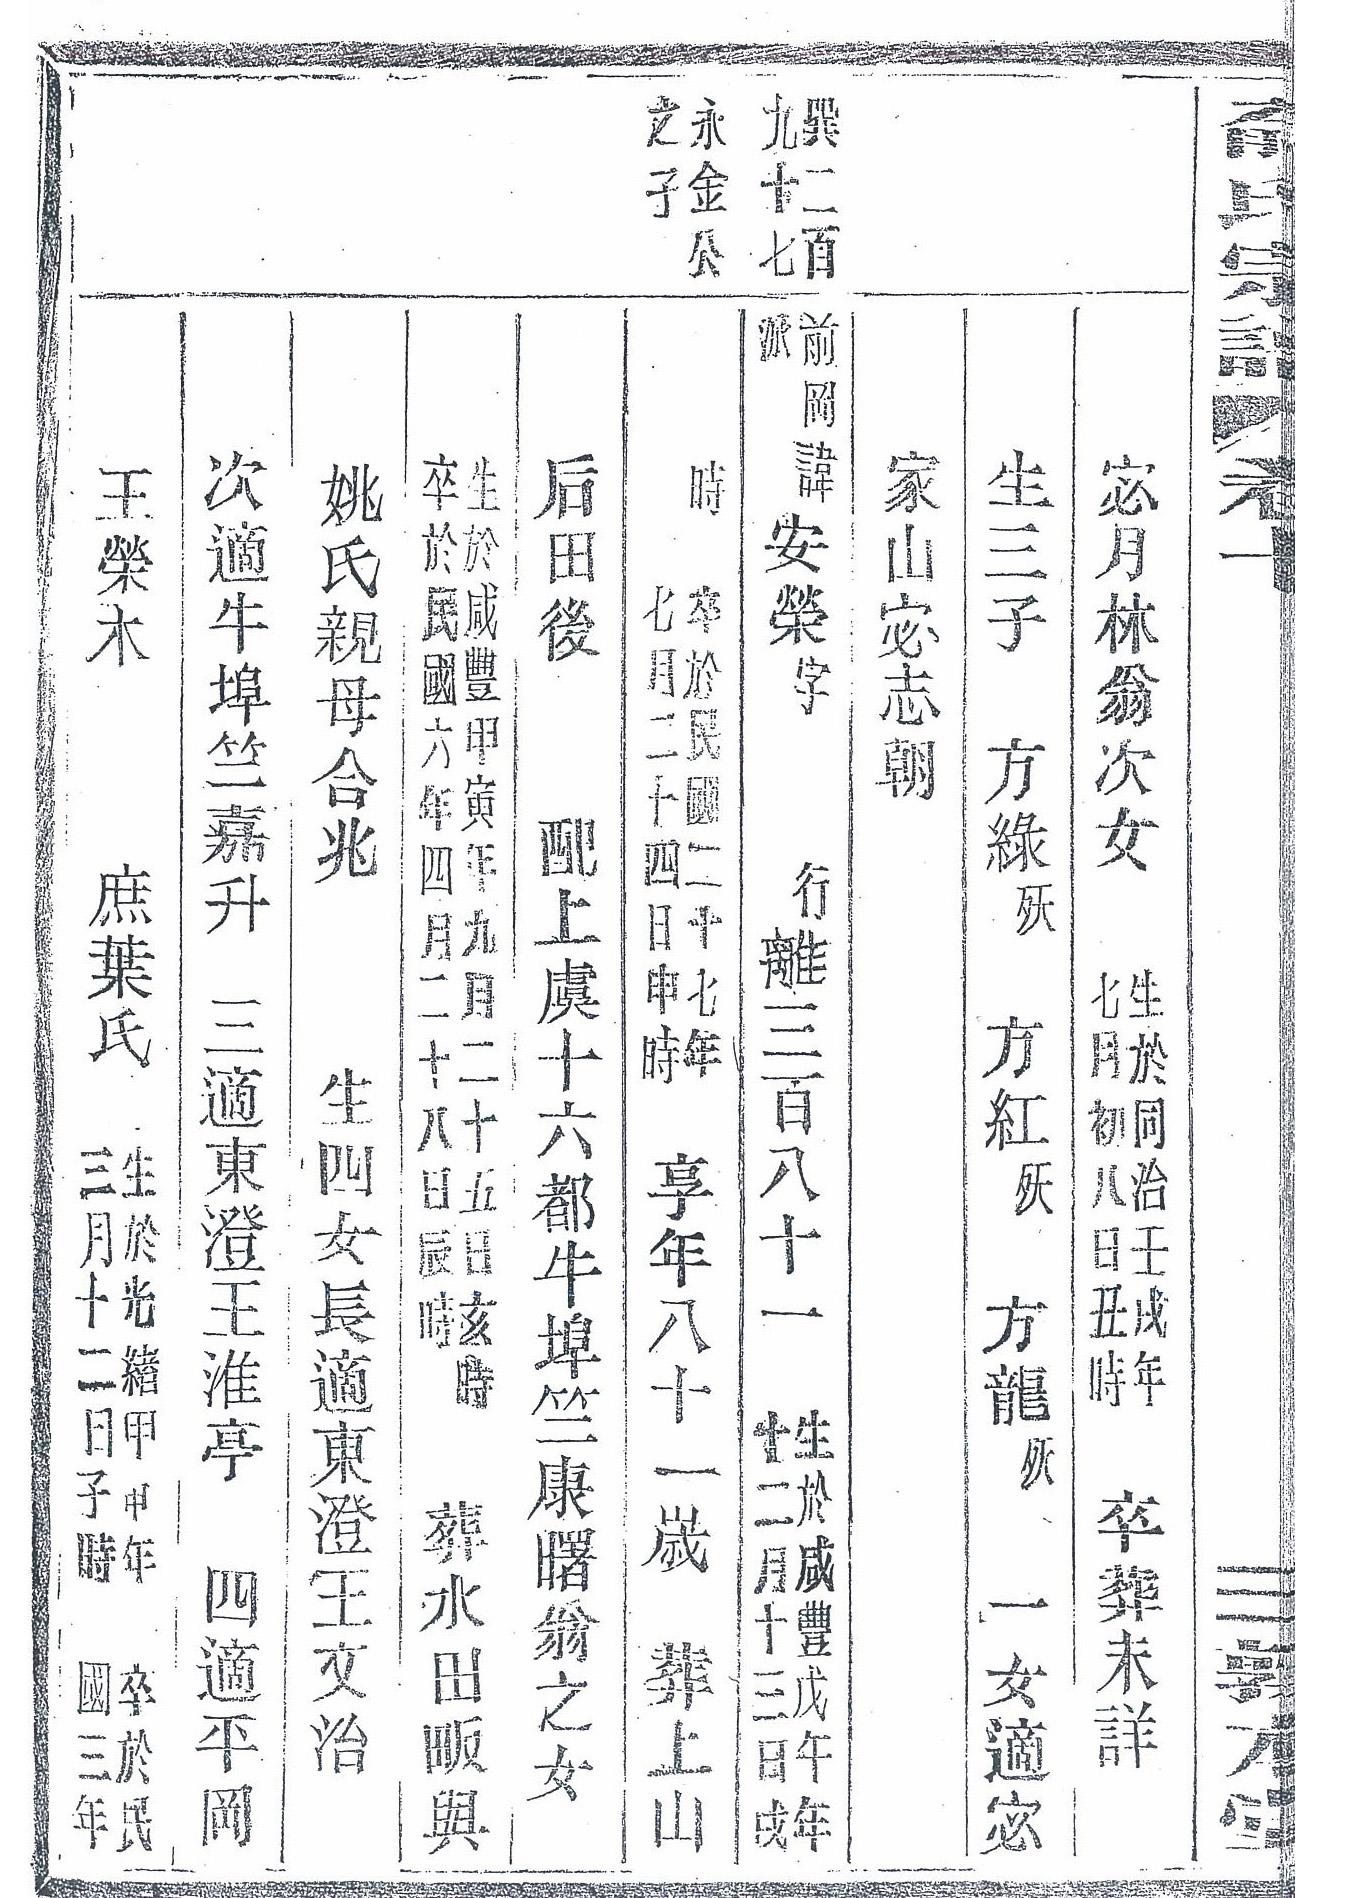 氏宗譜 卷十
宓月林翁次女 生於同治壬戌年七月初八日丑時 卒葬未詳
生三子 方綠 殀 方紅 殀 方龍 殀 一女適宓
家山宓志朝
巽二百九十七
前岡派 諱安榮字 行離三百八十一 生於咸豐戊午年十二月十三日戌
永金公之子
時 卒於民國二十七年七月二十四日申時 享年八十一歲 葬上山
后田後 配上虞十六都牛埠竺康曙翁之女
生於咸豐甲寅年九月二十五日亥時卒於民國六年四月二十八日辰時 葬水田畈與
姚氏親母合兆 生四女長適東澄王文治
次適牛埠竺嘉升 三適東澄王淮亭 四適平岡
王榮木 庶葉氏 生於光緒甲申年三月十二日子時 卒於民國三年